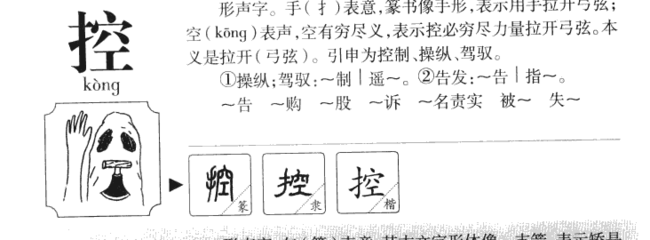 控
kòng
形声字。手(扌)表意,篆书像手形,表示用手拉开弓弦;
空(kōng)表声,空有穷尽义,表示控必穷尽力量拉开弓弦。本
义是拉开(弓弦)。引申为控制、操纵、驾驭。
①操纵;驾驭:～制｜遥～。②告发:～告｜指～。
～告 ～购 ～股 ～诉 ～名责实 被～ 失～
控 篆
控 隶
控 楷